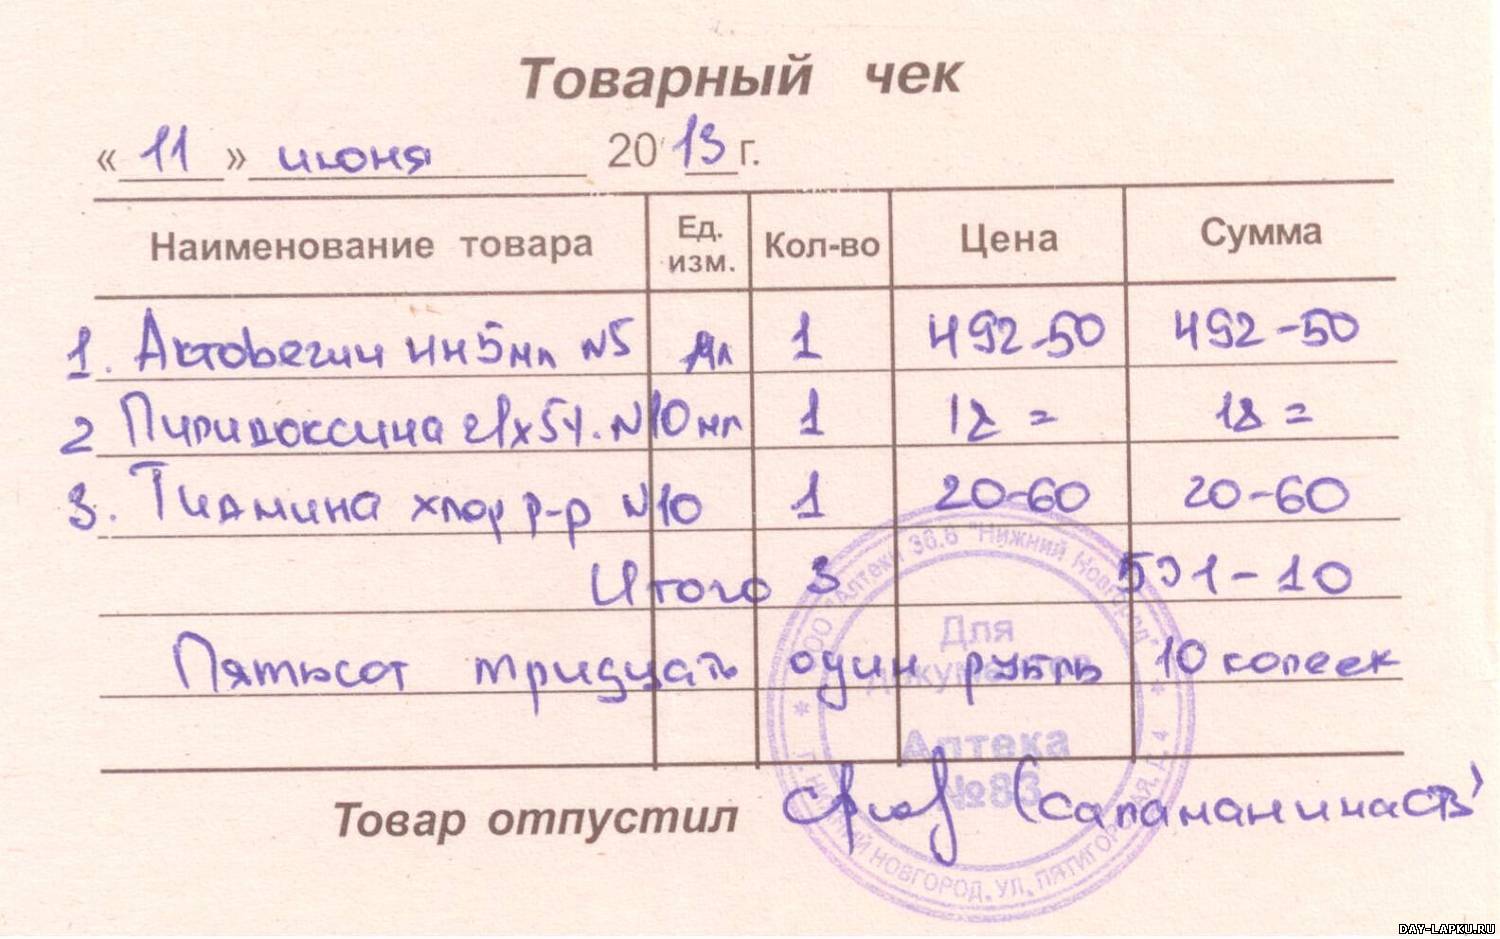 Товарный чек
« 11 » июня 20 13 г.
Наименование товара Ед. изм. Кол-во Цена Сумма
1. Актовегин ин 5мл N5 1 492-50 492-50
2 Пиридоксина N10 1 18= 18=
3. Тиамина хлор р-р N10 1 20-60 20-60
Итого 3 531-10
Пятьсот тридцать один рубль 10 копеек
Товар отпустил
ООО "Аптеки 36.6 "Нижний Новгород"
Для
документов
Аптека
№83
Г. НИЖНИЙ НОВГОРОД, УЛ. ПЯТИГОРСКАЯ, Д. 4
DAY-LAPKU.RU